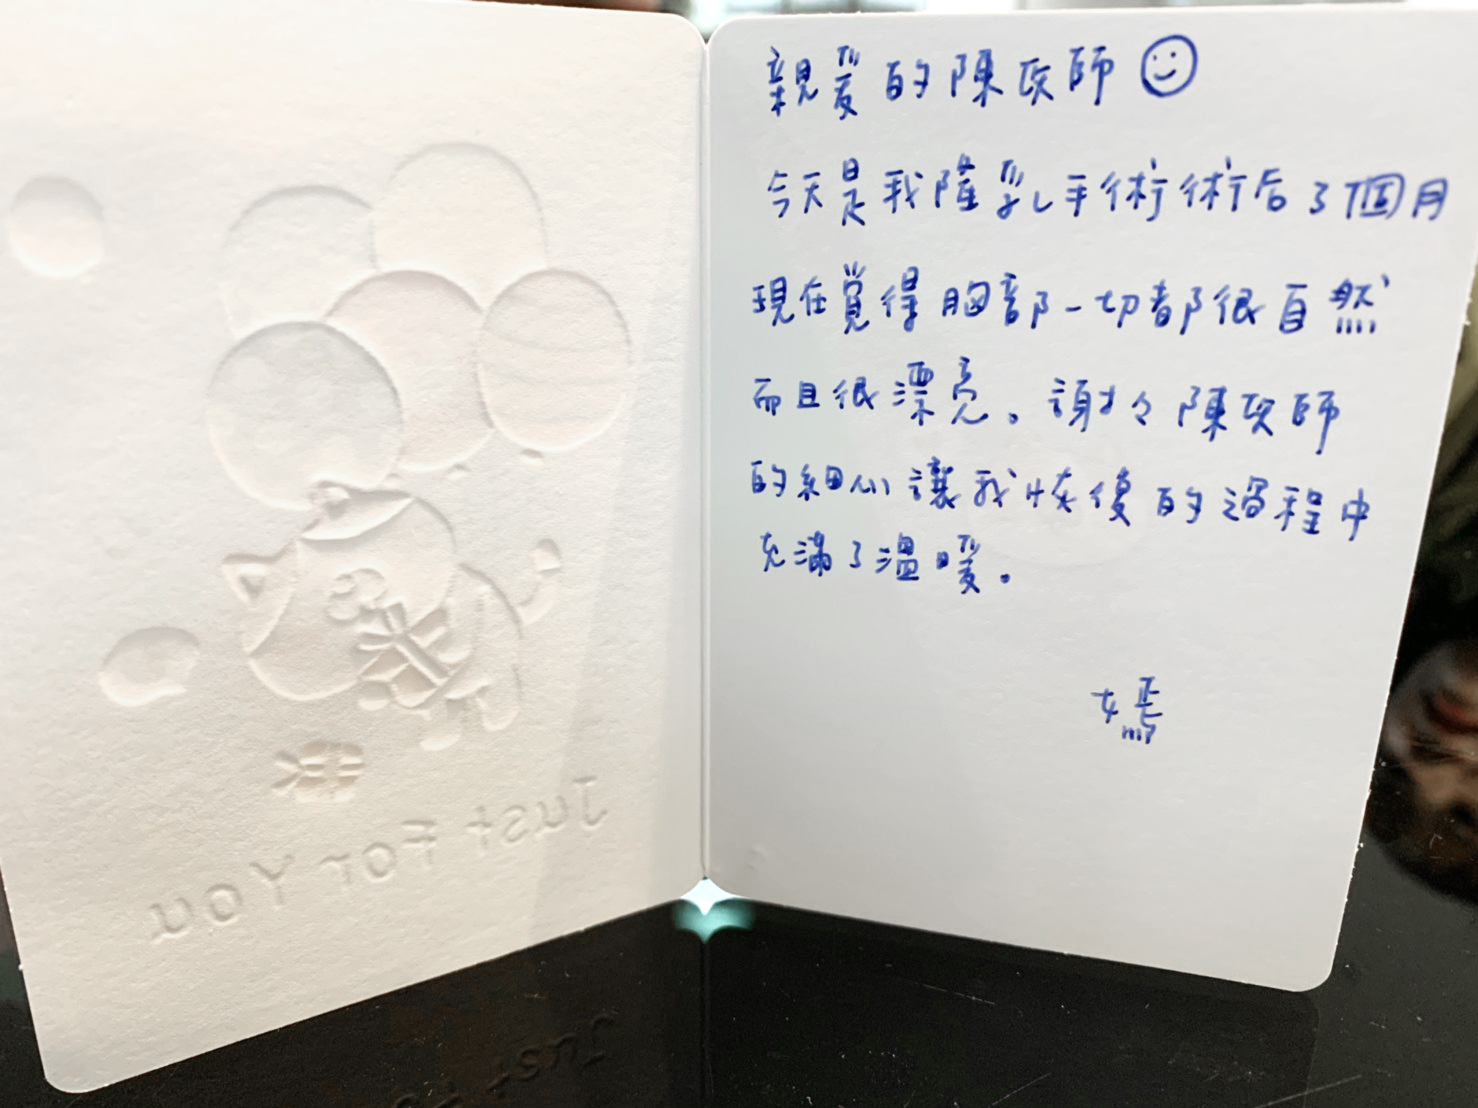 親愛的陳政師
今天是我隆乳手術術后3個月
現在覺得胸部一切都很自然
而且很漂亮。謝々陳政師
的細心讓我恢復的過程中
充滿了溫暖。
嫣
Just For You